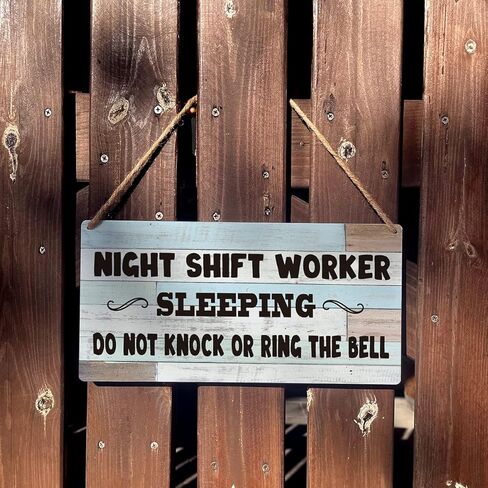 NIGHT SHIFT WORKER
SLEEPING
DO NOT KNOCK OR RING THE BELL